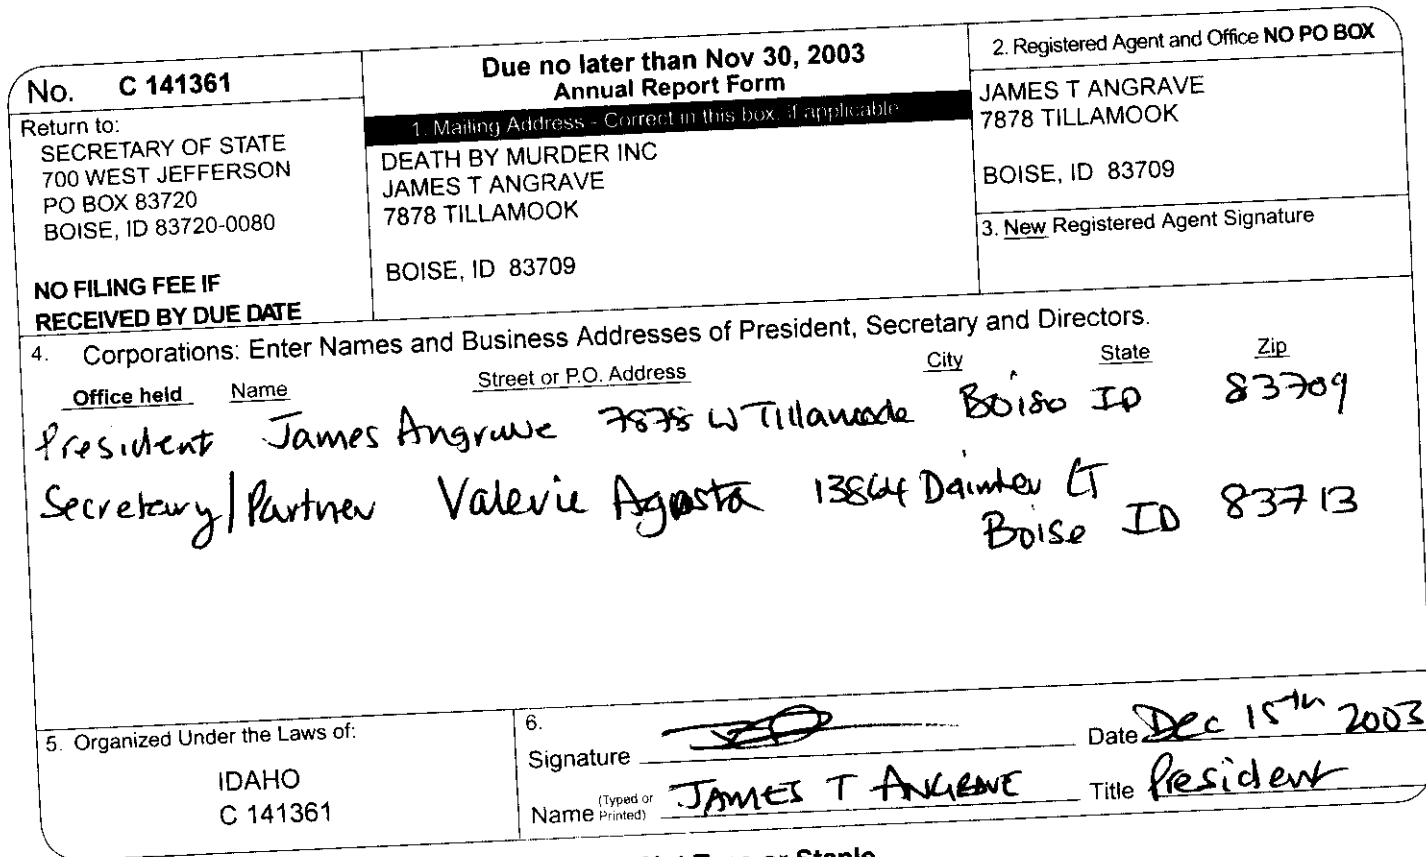 No. C 141361
Return to:
SECRETARY OF STATE
700 WEST JEFFERSON
PO BOX 83720
BOISE, ID 83720-0080
NO FILING FEE IF
RECEIVED BY DUE DATE
Due no later than Nov 30, 2003
Annual Report Form
1. Mailing Address - Correct in this box, if applicable
DEATH BY MURDER INC
JAMES T ANGRAVE
7878 TILLAMOOK
BOISE, ID 83709
2. Registered Agent and Office NO PO BOX
JAMES T ANGRAVE
7878 TILLAMOOK
BOISE, ID 83709
3. New Registered Agent Signature
4. Corporations: Enter Names and Business Addresses of President, Secretary and Directors.
Office held Name Street or P.O. Address City State Zip
President James Angrave 7878 W Boise ID 83709
Secretary/Partner Valerie Agosta CT
Boise ID 83713
5. Organized Under the Laws of:
IDAHO
C 141361
6.
Signature Date Dec 15th 2003
Name (Typed or Printed) JAMES T ANGRAVE Title President